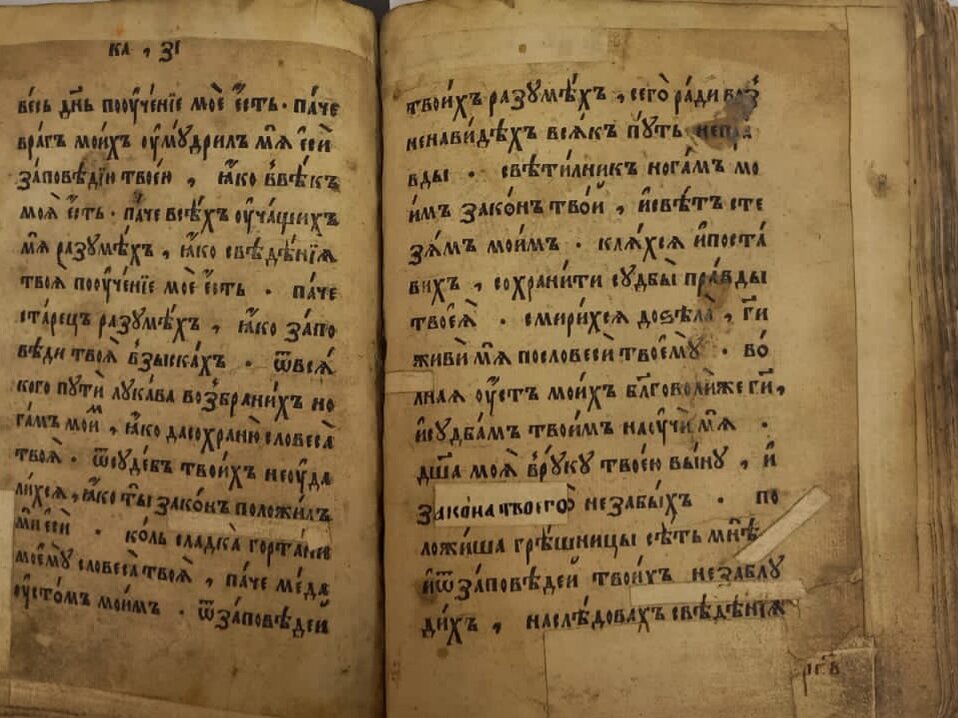 ка , зі
ве́сь дн҃ь поꙋче́нїе моѐ є҆́сть . па́че
вра́гъ мои́хъ ᲂу҆мꙋдри́лъ мѧ̀ є҆сѝ
за́повѣдїю твое́ю , ꙗ҆́ко в̾вѣ́къ
моѧ̀ є҆́сть . па́че всѣ́хъ ᲂу҆ча́щихъ
мѧ̀ разꙋмѣ́хъ , ꙗ҆́ко свѣдѣ́нїѧ
твоѧ̀ поꙋче́нїе моѐ є҆́сть . па́че
ста́рецъ разꙋмѣ́хъ , ꙗ҆́ко за́по
вѣди твоѧ̀ взыска́хъ . ѿвсѧ́
кого пꙋтѝ лꙋка́ва возбрани́хъ но
га́мъ мои́м , ꙗ҆́ко дасохраню̀ словеса̀
твоѧ̀ . ѿсꙋде́бъ твои́хъ неꙋда
ли́хсѧ , ꙗ҆́ко ты̀ зако́нъ положи́лъ
мѝ є҆сѝ . ко́ль сладка̀ горта́ни
моемꙋ̀ словеса̀ твоѧ̀ , па́че ме́да
ᲂу҆сто́мъ мои́мъ . ѿза́повѣдей
твои́хъ разꙋмѣ́хъ , сего̀ ра́ди воз̾
ненави́дѣхъ всѧ́къ пꙋ́ть непра
вды . свѣти́лникъ нога́мъ мо
и́мъ зако́нъ тво́й , и҆свѣ́тъ сте
зѧ́мъ мои́мъ . клѧ́хсѧ и҆поста́
вихъ , сохрани́ти сꙋдбы̀ пра́вды
твоеѧ̀ . смири́хсѧ доѕѣла̀ , гд҇и
живѝ мѧ̀ пословесѝ твоемꙋ̀ . во́
лнаѧ ᲂу҆́стъ мои́хъ бл҃говолѝже гд҇и ,
и҆сꙋдба́мъ твои́мъ наꙋчѝ мѧ̀ .
дш҃а моѧ̀ в̾рꙋкꙋ̀ твоє́ю вы́нꙋ , и҆
закона твоего̀ незабы́хъ . по
ложи́ша грѣ́шницы сѣ́ть мнѣ̀
и҆ѿза́повѣдей твои́хъ незаблꙋ
ди́хъ , наслѣ́довахъ свѣдѣ́нїѧ